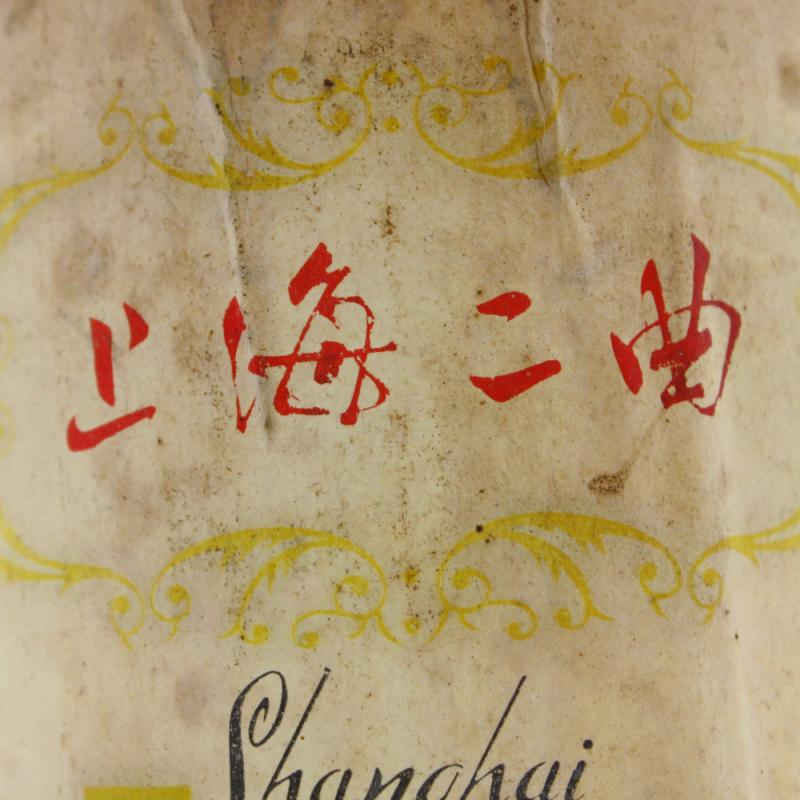 上海二曲
Shanghai